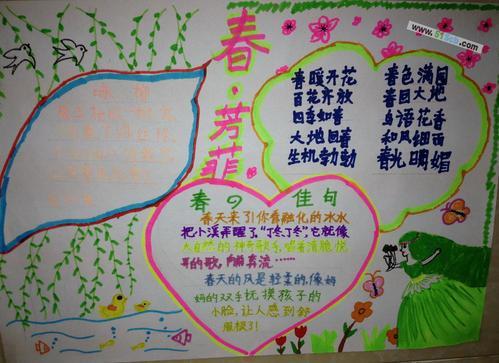 春·芳菲
咏柳
春暖开花
百花齐放
四季如春
大地回春
生机勃勃
春色满园
春回大地
鸟语花香
和风细雨
春光明媚
春の佳句
春天来了!你看融化的冰水
把小溪弄醒了"丁冬、丁冬",它就像
大自然的神奇歌手,唱着清脆悦
耳的歌,向前奔流……
春天的风是轻柔的,像妈
妈的双手抚摸孩子的
小脸,让人感到舒
服极了!